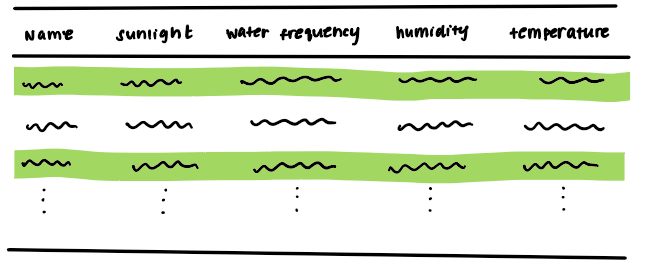 Name sunlight water frequency humidity temperature